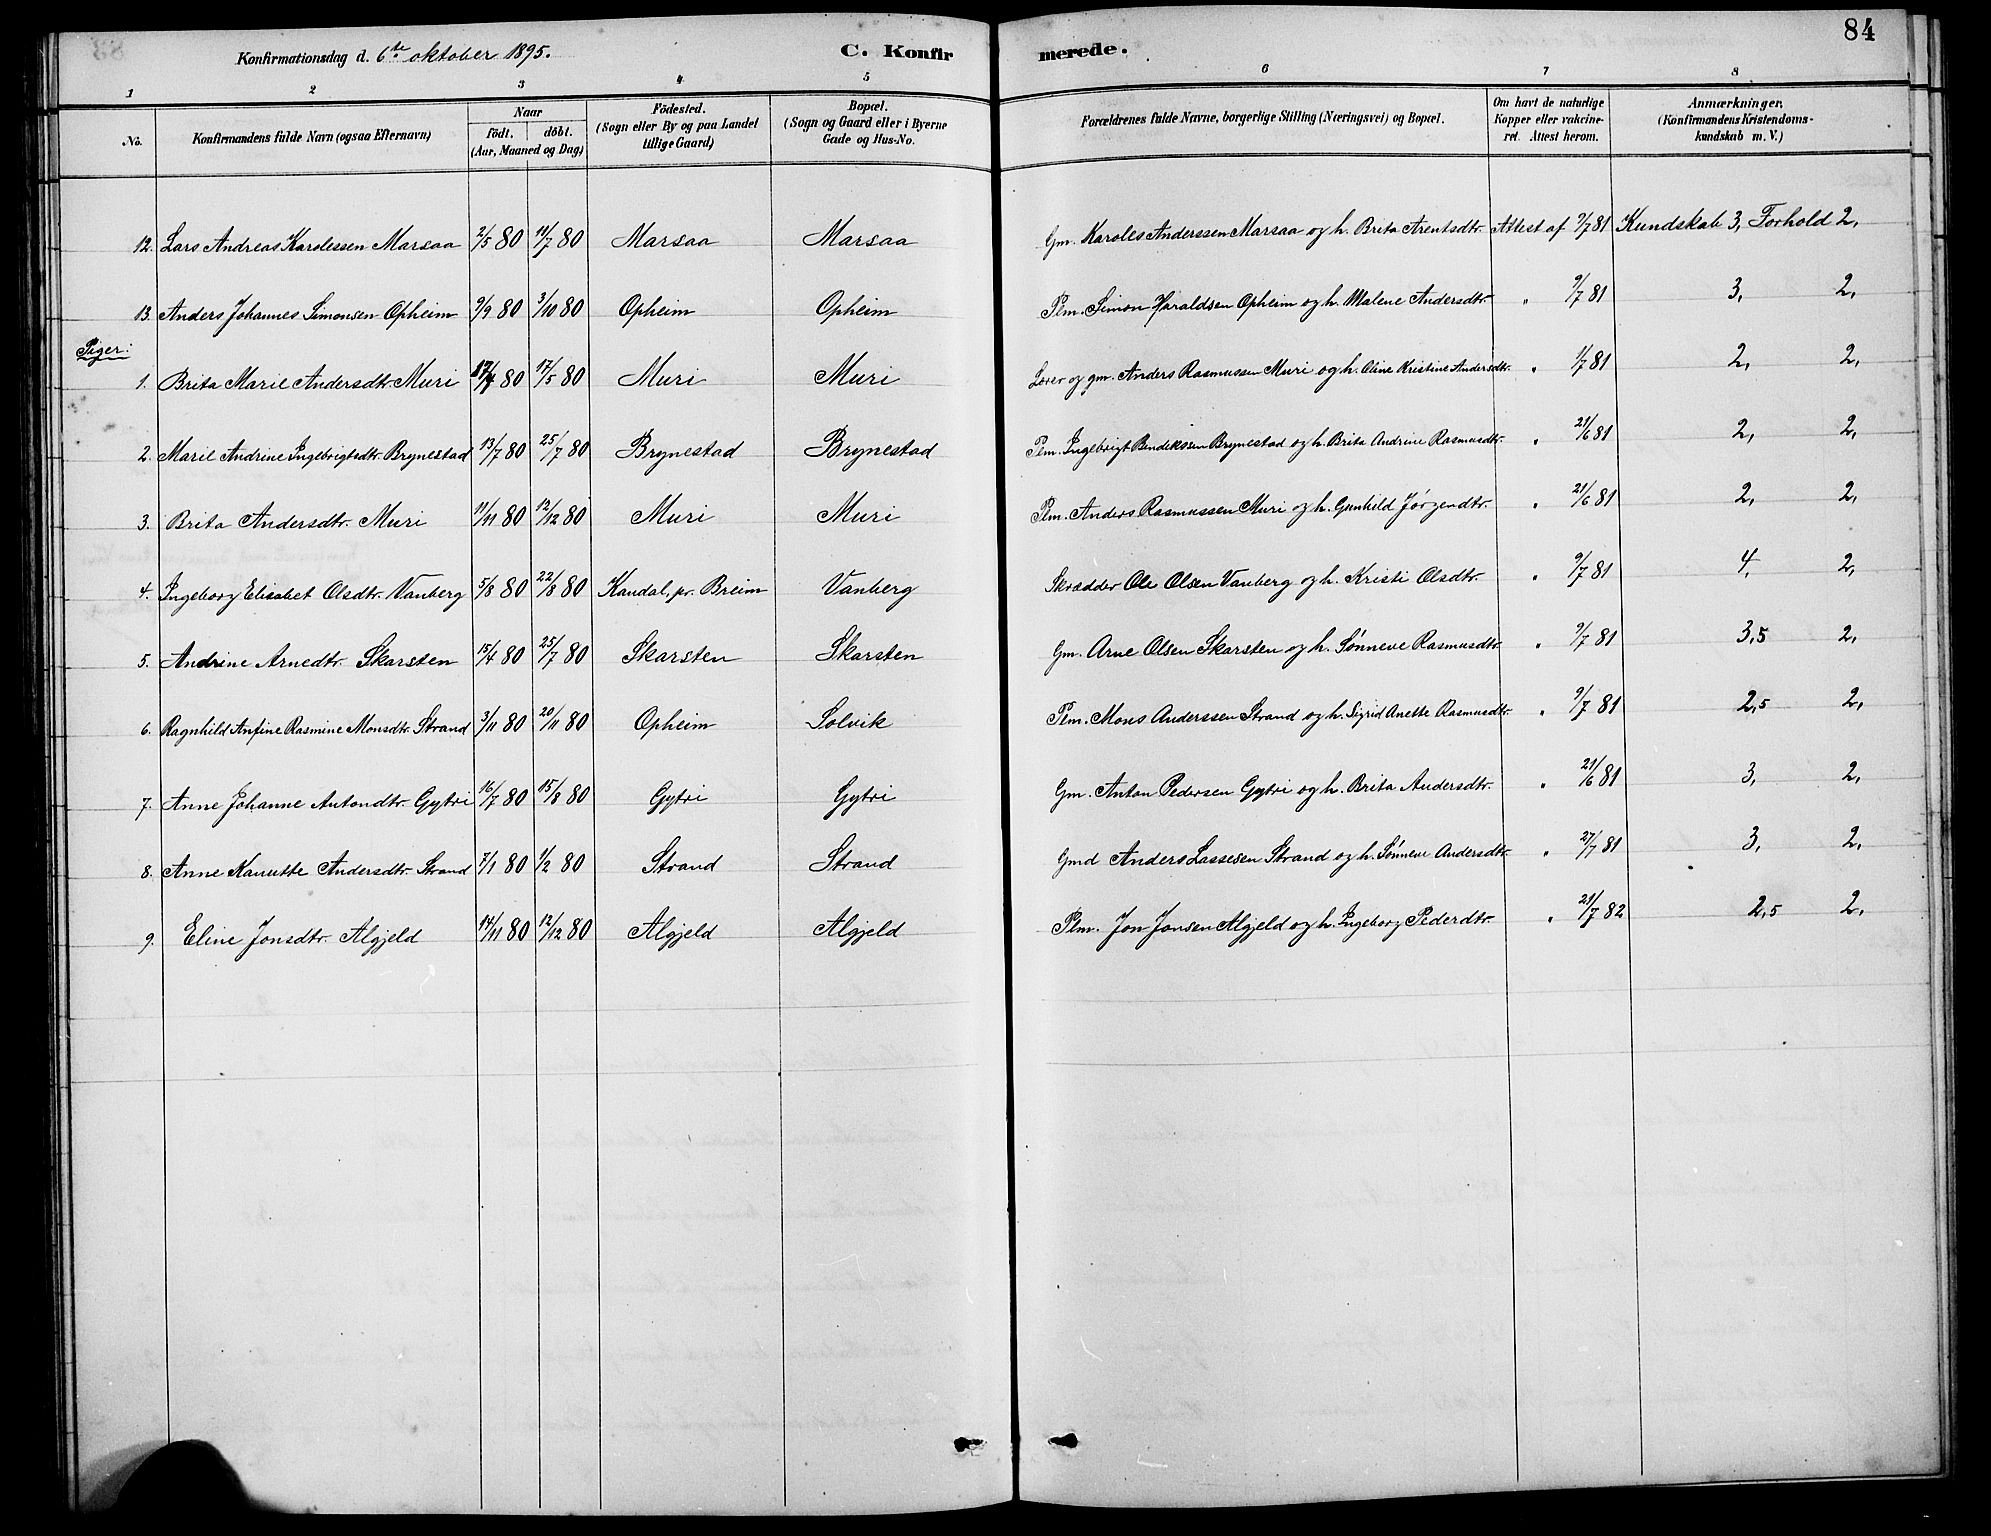 84
Konfirmationsdag d. 6te oktober 1895. C. Konfirmerede.
1 2 3 4 5 6 7 8
No. Konfirmandens fulde Navn (ogsaa Efternavn) Naar født. døbt. (Aar, Maaned og Dag) Födested. (Sogn eller By og paa Landet tillige Gaard) Bopæl. (Sogn og Gaard eller i Byerne Gade og Hus-No. Forældrenes fulde Navne, borgerlige Stilling (Næringsvei) og Bopæl. Om havt de naturlige Kopper eller vakcineret. Attest herom. Anmærkninger. (Konfirmandens Kristendomskundskab m. V.)
12. Lars Andreas Karolessen Marsaa 2/5 80 11/7 80 Marsaa Marsaa Gm. Karoles Anderssen Marsaa og h. Brita Arentsdtr. Attest af 9/7 81 Kundskab 3, Forhold 2,
13. Anders Johannes Simonsen Opheim 9/9 80 3/10 80 Opheim Opheim Plm. Simon Haraldsen Opheim og h. Malene Andersdtr. " 9/7 81 3, 2,
Piger:
1. Brita Marie Andersdtr. Muri 17/4 80 17/5 80 Muri Muri Lærer og gm. Anders Rasmussen Muri og h. Oline Kristine Andersdtr. " 1/7 81 2, 2,
2. Marie Andrine Ingebrigtsdtr. Brynestad 13/7 80 25/7 80 Brynestad Brynestad Plm. Ingebrigt Bendikssen Brynestad og h. Brita Andrine Rasmusdtr. " 21/6 81 2, 2,
3. Brita Andersdtr. Muri 11/11 80 12/12 80 Muri Muri Plm. Anders Rasmussen Muri og h. Gunhild Jörgendtr. " 21/6 81 2, 2,
4. Ingeborg Elisabet Olsdtr. Vanberg 5/8 80 22/8 80 Kandal, pr. Breim Vanberg Skrædder Ole Olsen Vanberg og h. Kristi Olsdtr. " 9/7 81 4, 2,
5. Andrine Arnedtr. Skarsten 15/4 80 25/7 80 Skarsten Skarsten Gm. Arne Olsen Skarsten og h. Sönneve Rasmusdtr. " 9/7 81 3,5 2,
6. Ragnhild Anfine Rasmine Monsdtr. Strand 3/11 80 20/11 80 Opheim Solvik Plm. Mons Anderssen Strand og h. Sigrid Anette Rasmusdtr. " 9/7 81 2,5 2,
7. Anne Johanne Antondtr. Gytri 16/7 80 15/8 80 Gytri Gytri Gm. Anton Pedersen Gytri og h. Brita Andersdtr. " 21/6 81 3, 2,
8. Anne Kanutte Andersdtr. Strand 7/1 80 1/2 80 Strand Strand Gmd Anders Lassesen Strand og h. Sönneve Andersdtr. " 27/7 81 3, 2,
9. Eline Jonsdtr. Algjeld 14/11 80 12/12 80 Algjeld Algjeld Plm. Jon Jonsen Algjeld og h. Ingeborg Pederdtr. " 21/7 82 2,5 2,